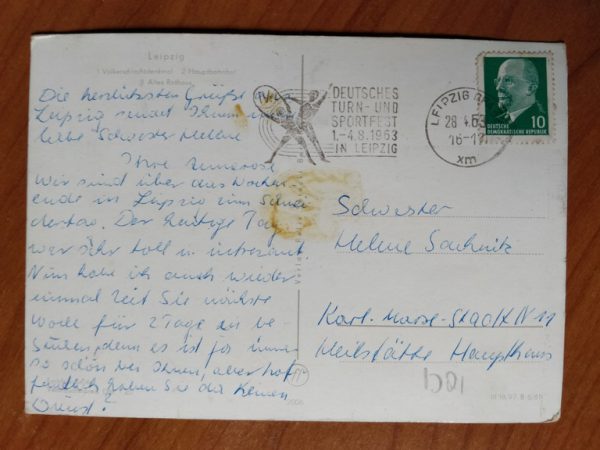 Leipzig
1 Völkerschlachtdenkmal 2 Hauptbahnhof
3 Altes Rathaus
Die herzlichsten Grüße
Leipzig sendet Ihnen
liebe Schwester Helene
Ihre Annerose
Wir sind über das Wochen
ende in Leipzig zum
Der heutige Tag
war sehr toll u. interessant
Nun habe ich auch wieder
einmal Zeit Sie nächste
Woche für 2 Tage zu be-
suchen, denn es ist ja immer
so schön bei Ihnen, aber hof
fentlich haben Sie da keinen
Dienst!
DEUTSCHES
TURN- UND
SPORTFEST
1.-4.8.1963
IN LEIPZIG
LEIPZIG
28.4.63
16-17
xm
DEUTSCHE
DEMOKRATISCHE REPUBLIK
10
Schwester
Helene
Karl-Marx-Stadt N 11
Heilstätte Haupthaus